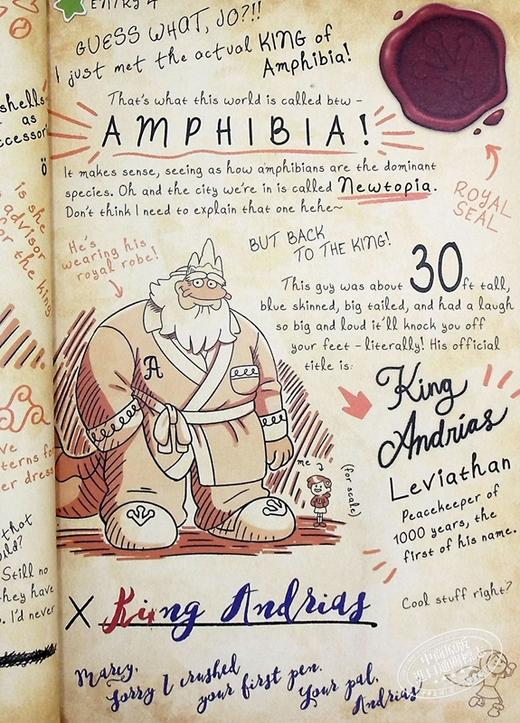 Entry 4
GUESS WHAT, JO?!!
I just met the actual KING of
Amphibia!
That's what this world is called btw -
AMPHIBIA!
It makes sense, seeing as how amphibians are the dominant
species. Oh and the city we're in is called Newtopia.
Don't think I need to explain that one hehe~
ROYAL
SEAL
He's
wearing his
royal robe!
BUT BACK
TO THE KING!
This guy was about 30ft tall,
blue skinned, big tailed, and had a laugh
so big and loud it'll knock you off
your feet - literally! His official
title is:
King
Andrias
Leviathan
Peacekeeper of
1000 years, the
first of his name.
A
me
(for scale)
Cool stuff right?
X King Andrias
Marcy,
Sorry I crushed
your first pen.
Your pal,
Andrias
shells
as
is she
advisor
or the king
ve
that
Still no
they have
I'd never